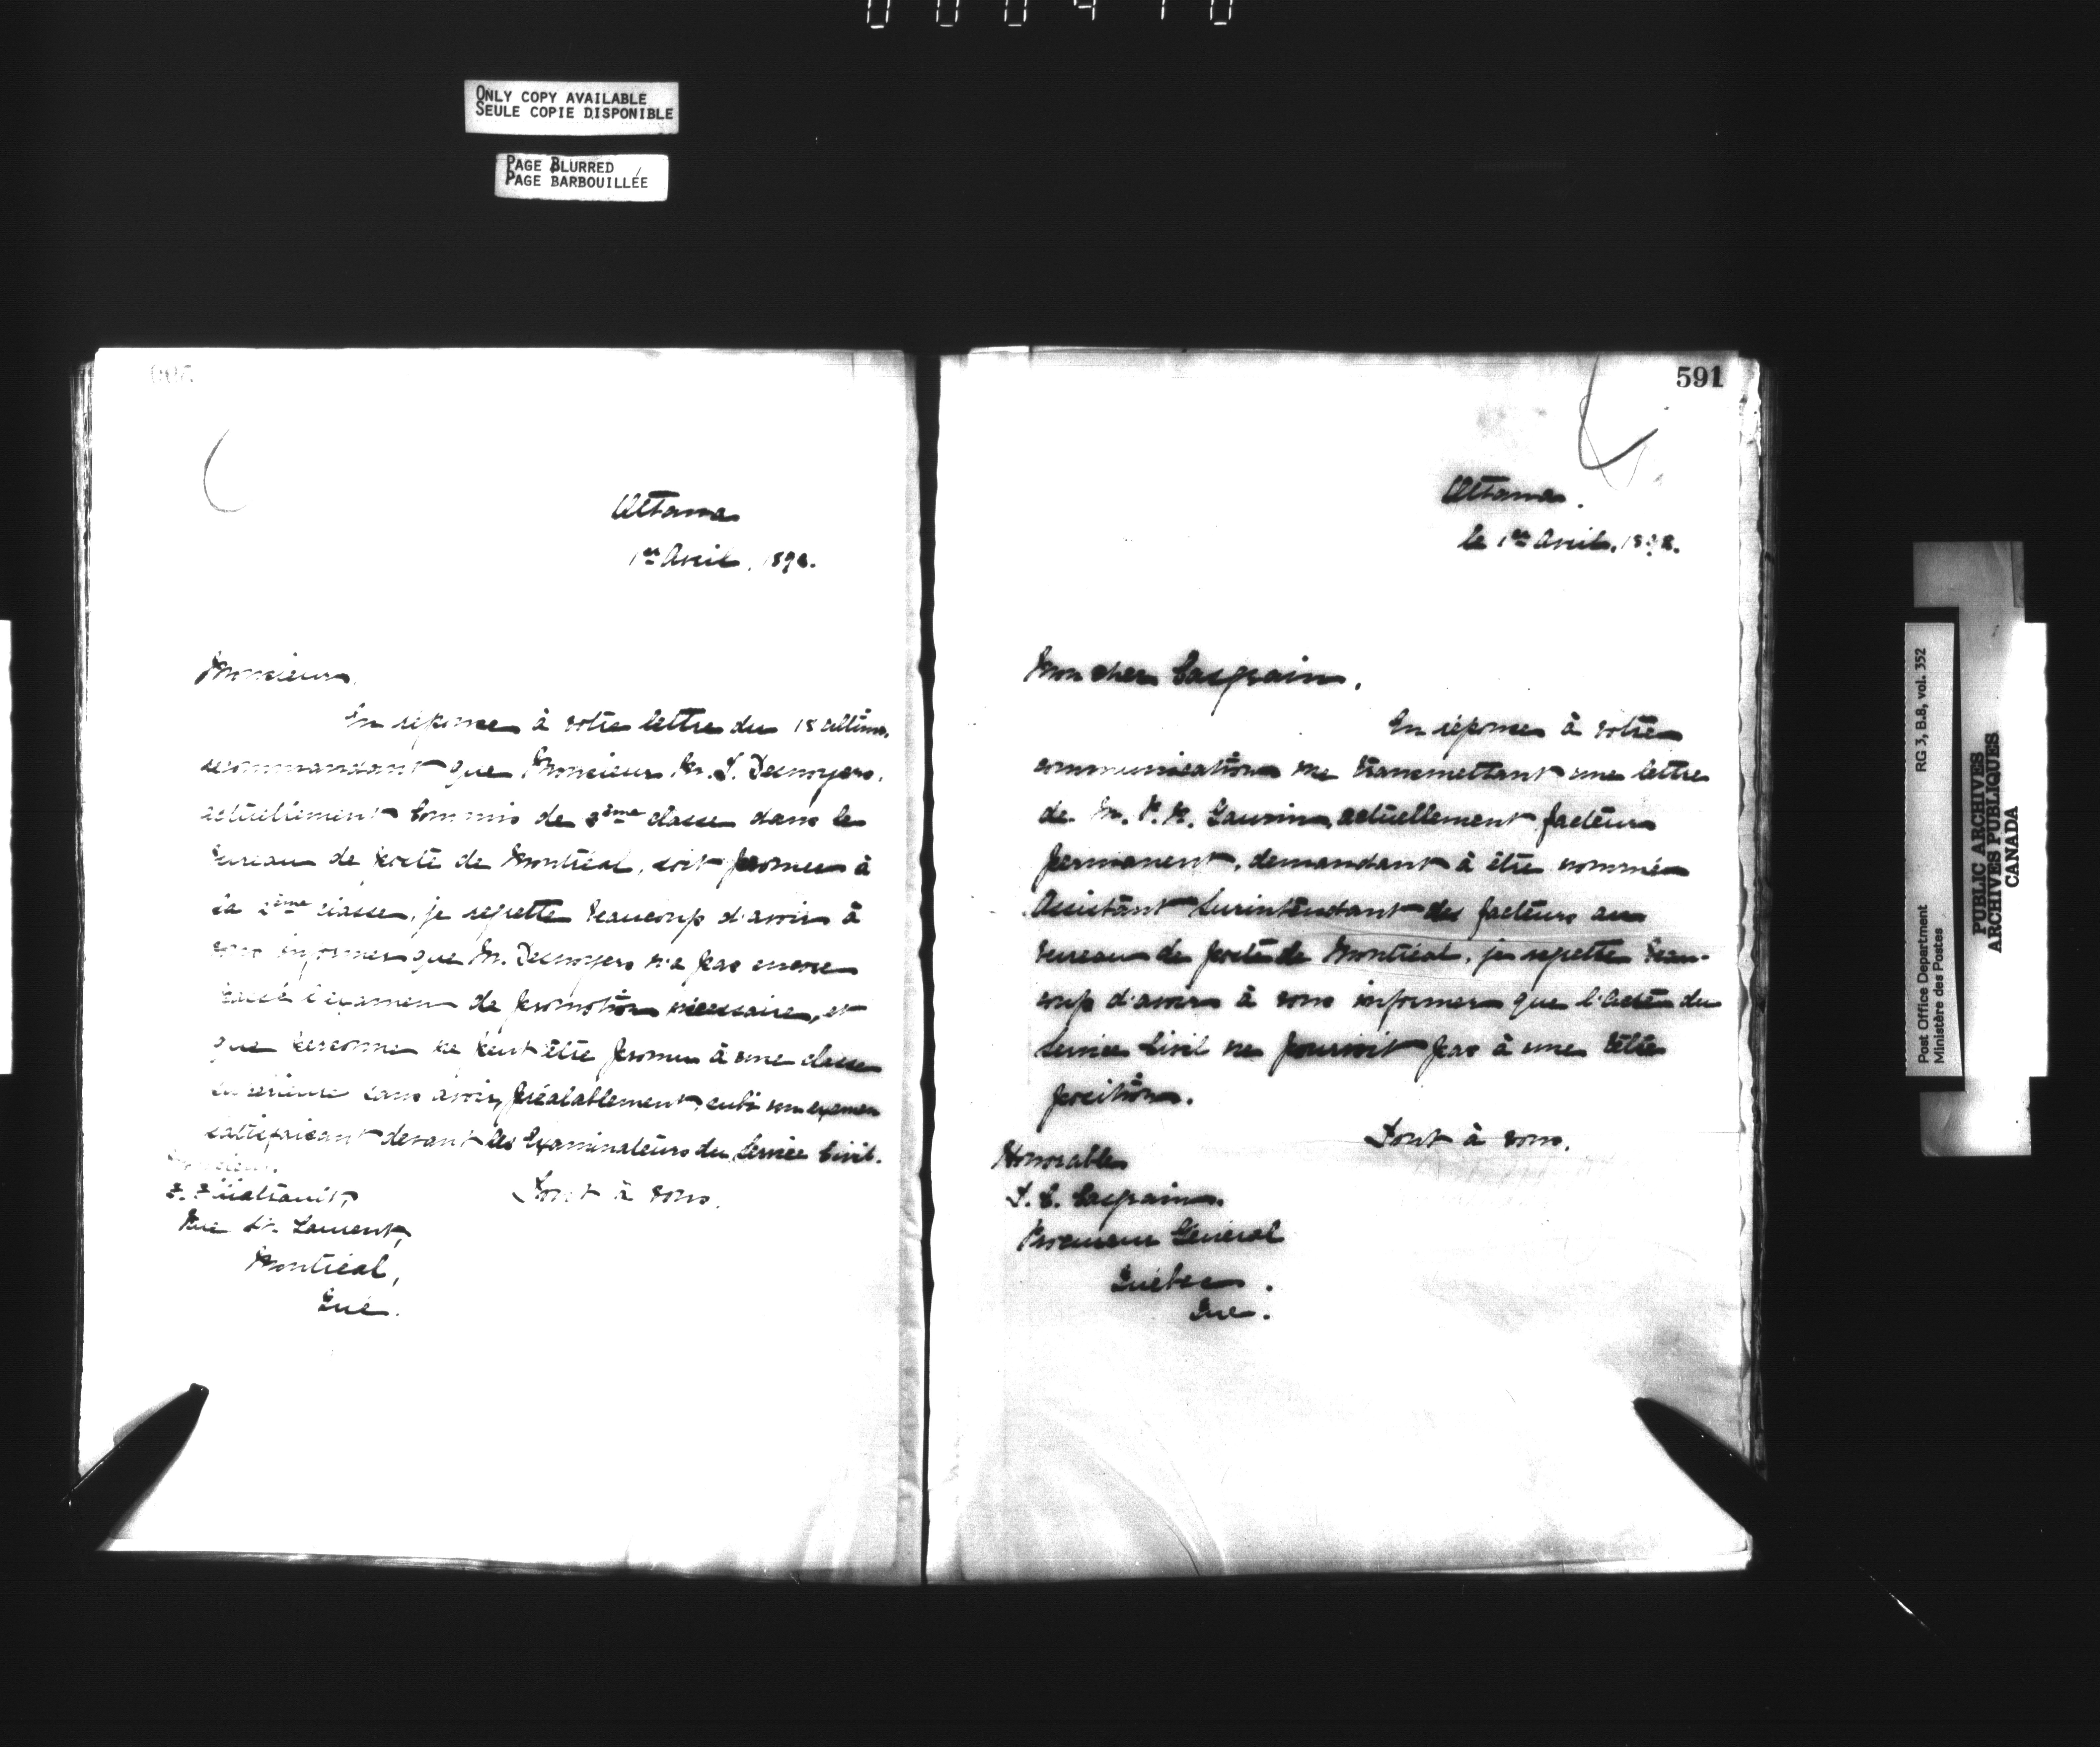 ONLY COPY AVAILABLE
SEULE COPIE DISPONIBLE
PAGE BLURRED
PAGE BARBOUILLÉE
Ottawa
1er Avril, 1892.
Monsieur,
En réponse à votre lettre du 18 ultimo,
recommandant que Monsieur Desnoyers,
actuellement Commis de 3ème classe dans le
bureau de poste de Montréal, soit promu à
la 2ème classe, je regrette beaucoup d'avoir à
vous informer que M. Desnoyers n'a pas encore
passé l'examen de promotion nécessaire, et
que personne ne peut être promu à une classe
supérieure sans avoir, préalablement, subi un examen
satisfaisant devant les Examinateurs du Service Civil.
Tout à vous,
Monsieur
Rue St. Laurent,
Montréal,
Qué.
591
Ottawa.
le 1er Avril, 1892.
Mon cher Casgrain,
En réponse à votre
communication me transmettant une lettre
de M. Gauvin, actuellement facteur
permanent, demandant à être nommé
Assistant Surintendant des facteurs au
bureau de poste de Montréal, je regrette beau-
coup d'avoir à vous informer que l'Acte du
Service Civil ne pourvoit pas à une telle
position.
Tout à vous,
Honorable
T. C. Casgrain,
Procureur Général
Québec.
Qué.
Post Office Department RG 3, B.8, vol. 352
Ministère des Postes
PUBLIC ARCHIVES
ARCHIVES PUBLIQUES
CANADA